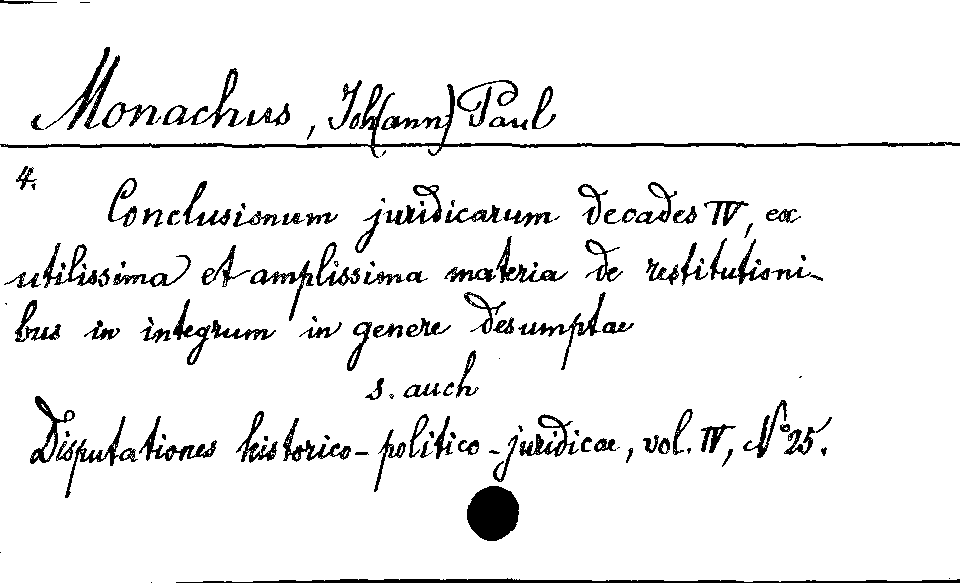 Monachus, Joh(ann) Paul
4.
Conclusionum juridicarum decades IV, ex
utilissima et amplissima materia de restitutioni-
bus in integrum in genere desumptae
s. auch
Disputationes historico-politico-juridicae, vol. IV, No 25.